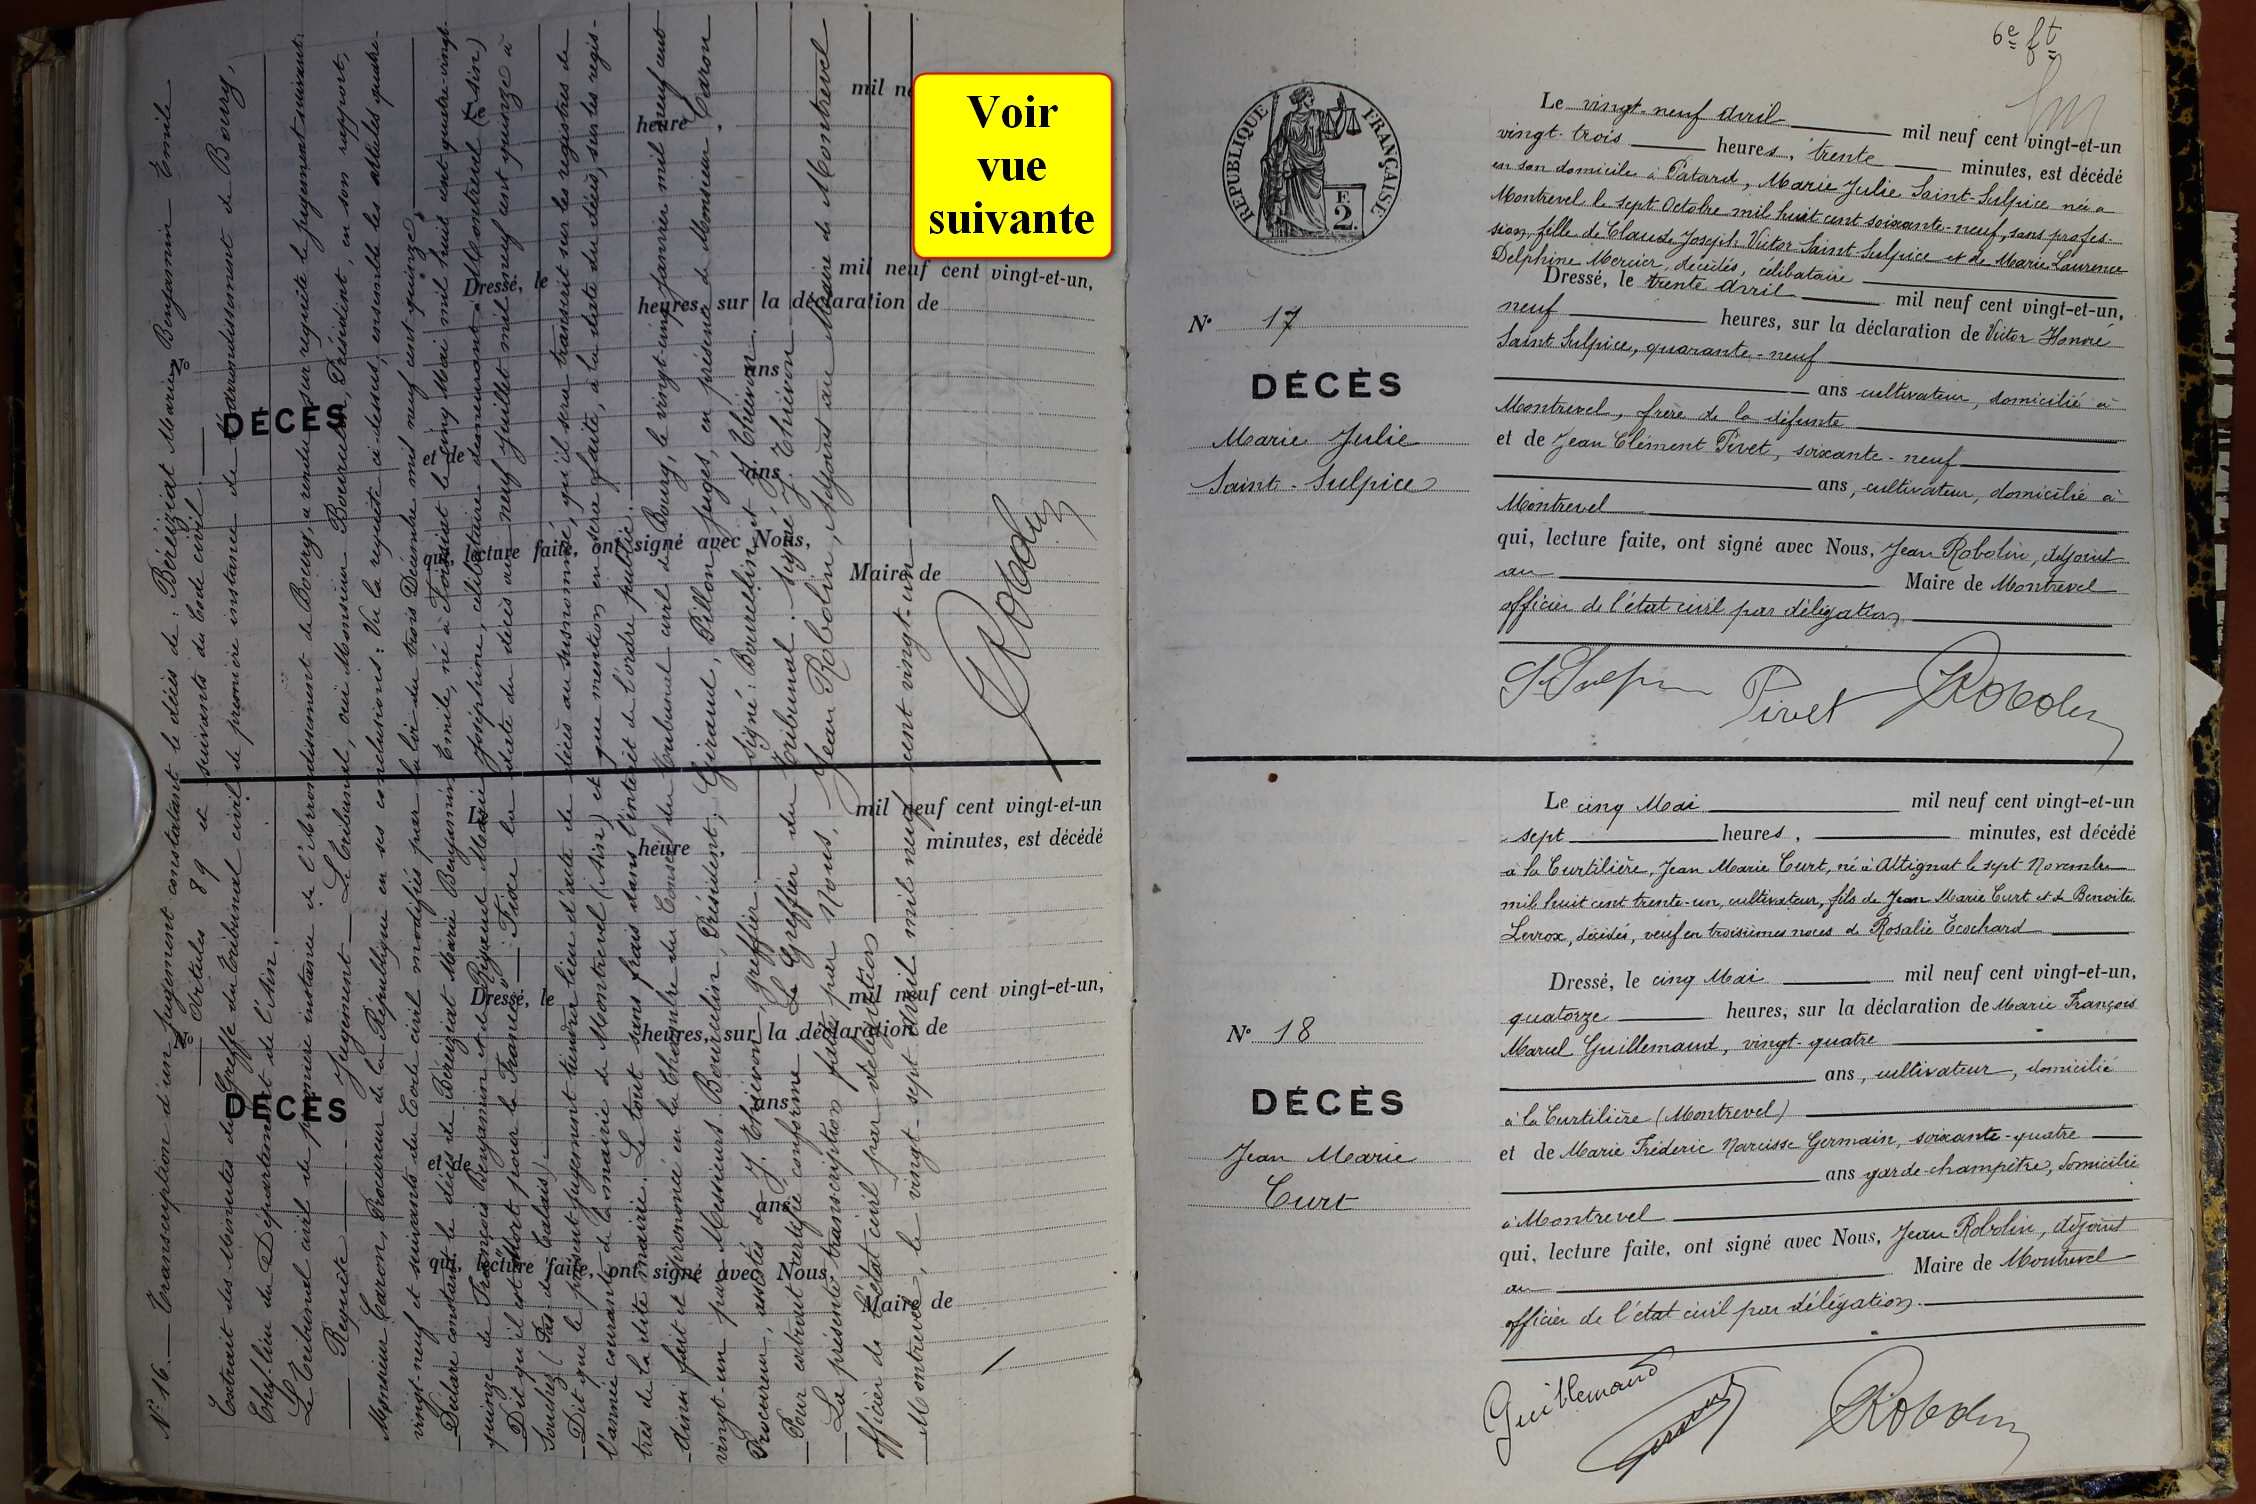 N° 16. — Transcription d'un jugement constatant le décès de : Béréziat Marie Benjamin Emile
Articles 89 et suivants du Code civil.
Extrait des Minutes du Greffe du Tribunal civil de première instance de l'Arrondissement de Bourg,
Chef-lieu du Département de l'Ain.
Le Tribunal civil de première instance de l'Arrondissement de Bourg, a rendu sur requête le jugement suivant:
Requête — Jugement — Le Tribunal, ouï Monsieur Bourselin, Président, en son rapport,
Monsieur Caron, Procureur de la République en ses conclusions: Vu la requête ci-dessus, ensemble les articles quatre-
vingt-neuf et suivants du Code civil modifiés par la loi du trois Décembre mil neuf cent quinze,
Déclare constant le décès de Béréziat Marie Benjamin Emile, né à le cinq Mai mil huit cent quatre-vingt-
quinze de François Benjamin et de Marie Joséphine, célibataire demeurant à Montrevel (Ain)
Dit qu'il est "Mort pour la France". Fixe la date du décès au neuf Juillet mil neuf cent quinze à
Souchez (Pas-de-Calais)
Dit que le présent jugement tiendra lieu d'acte de décès au susnommé, qu'il sera transcrit sur les registres de
l'année courante de la mairie de Montrevel (Ain) et que mention en sera faite, à la date du décès, sur les regis-
tres de la dite mairie. Le tout sans frais dans l'intérêt de l'ordre public.
Ainsi fait et prononcé en la Chambre du Conseil du Tribunal civil de Bourg, le vingt-cinq Janvier mil neuf cent
vingt-un par Messieurs Bourselin, Président, Giraud, Pillon juges, en présence de Monsieur Caron
Procureur, assistés de J. Thiévon, greffier. Signé: Bourselin et J. Thiévon.
Pour extrait certifié conforme Le Greffier du Tribunal. Signé J. Thiévon
La présente transcription faite par Nous, Jean Robolin, Adjoint au Maire de Montrevel
officier de l'état civil par délégation
Montrevel, le vingt-sept Avril mil neuf cent vingt-un
Robolin
DÉCÈS
mil neuf cent vingt-et-un,
heure
Dressé, le
heures, sur la déclaration de
ans
et de
ans
qui, lecture faite, ont signé avec Nous,
Maire de
Le
mil neuf cent vingt-et-un
heure
minutes, est décédé
DÉCÈS
Dressé, le
mil neuf cent vingt-et-un,
heures, sur la déclaration de
ans
et de
ans
qui, lecture faite, ont signé avec Nous
Maire de
Voir
vue
suivante
6e ft
RÉPUBLIQUE FRANÇAISE
F.
2.
N° 17
DÉCÈS
Marie Julie
Saint-Sulpice
Le vingt-neuf Avril mil neuf cent vingt-et-un
vingt-trois heures, trente minutes, est décédé
en son domicile à Patard, Marie Julie Saint-Sulpice née à
Montrevel le sept Octobre mil huit cent soixante-neuf, sans profes-
sion, fille de Claude Joseph Victor Saint-Sulpice et de Marie Laurence
Delphine Mercier, décédés, célibataire
Dressé, le trente Avril mil neuf cent vingt-et-un,
neuf heures, sur la déclaration de Victor Honoré
Saint Sulpice, quarante-neuf
ans cultivateur, domicilié à
Montrevel, frère de la défunte
et de Jean Clément Pivet, soixante-neuf
ans, cultivateur, domicilié à
Montrevel
qui, lecture faite, ont signé avec Nous, Jean Robolin, Adjoint
au Maire de Montrevel
officier de l'état civil par délégation
St Sulpice Pivet Robolin
N° 18
DÉCÈS
Jean Marie
Curt
Le cinq Mai mil neuf cent vingt-et-un
sept heures, minutes, est décédé
à la Curtilière, Jean Marie Curt, né à Attignat le sept Novembre
mil huit cent trente-un, cultivateur, fils de Jean Marie Curt et de Benoite
Levrox, décédés, veuf en troisièmes noces de Rosalie Ecochard
Dressé, le cinq Mai mil neuf cent vingt-et-un,
quatorze heures, sur la déclaration de Marie François
Marcel Guillemaud, vingt-quatre
ans, cultivateur, domicilié
à la Curtilière (Montrevel)
et de Marie Fréderic Narcisse Germain, soixante-quatre
ans garde-champêtre, domicilié
à Montrevel
qui, lecture faite, ont signé avec Nous, Jean Robolin, Adjoint
au Maire de Montrevel
officier de l'état civil par délégation.
Guillemaud Germain Robolin